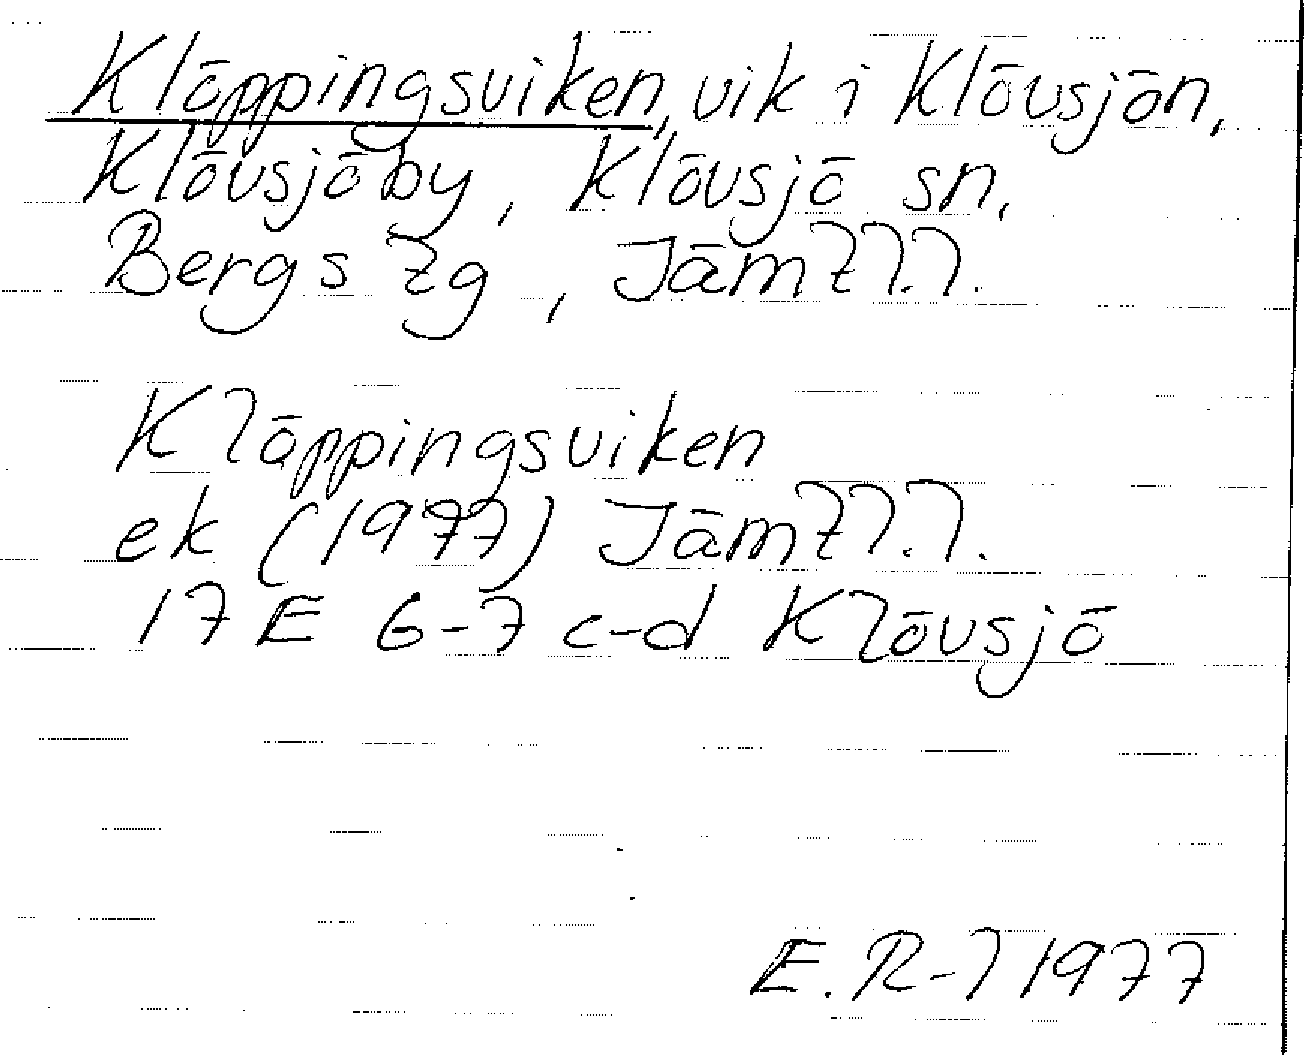 Kläppingsviken, vik i Klövsjön,
Klövsjöby, Klövsjö sn,
Bergs tg, Jämtl.l.
Kläppingsviken
ek (1977) Jämtl.l.
17 E 6-7 c-d Klövsjö
E.R-l 1977